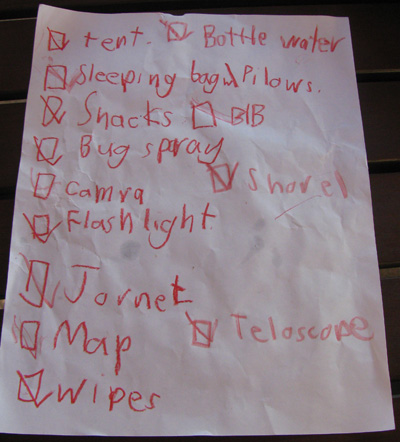 tent. Bottle water
Sleeping bag\ Pilows.
Snacks BIB
Bug spray
camra Shovel
Flash light
Jornet
Map Teloscope
wipes